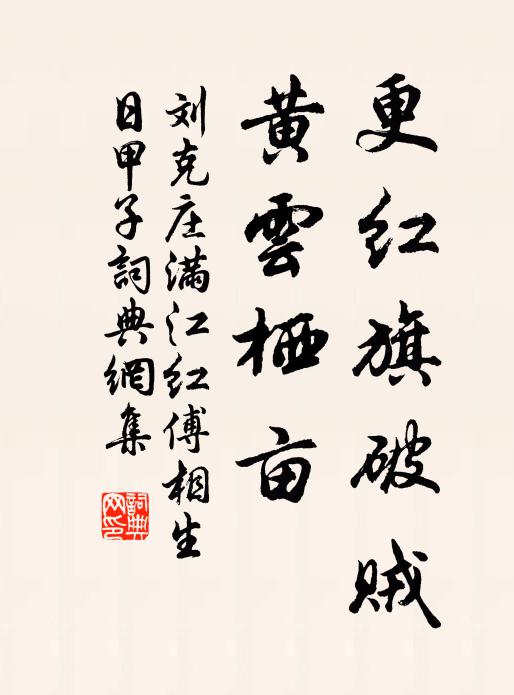 更红旗破贼
黄雲栖亩
刘克庄满江红傅相生
日甲子詞典網集
詞典
网印